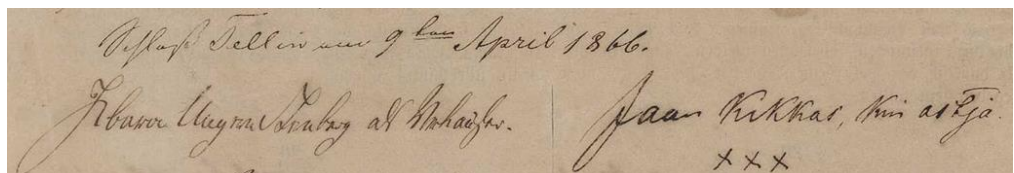 Schloß Fellin am 9ten April 1866.
Baron Ungern Sternberg als Verkäufer. Jaan Kikkas, kui ostja.
XXX